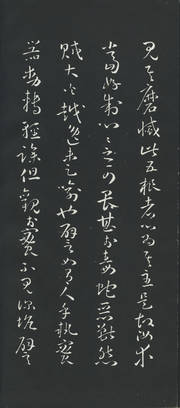 見其磨滅此五根者心為其主是故汝等
當好制心心之可畏甚於毒蛇惡獸怨
賊大火越逸未足喻也譬如有人手執蜜
器動轉輕躁但觀於蜜不見深坑譬